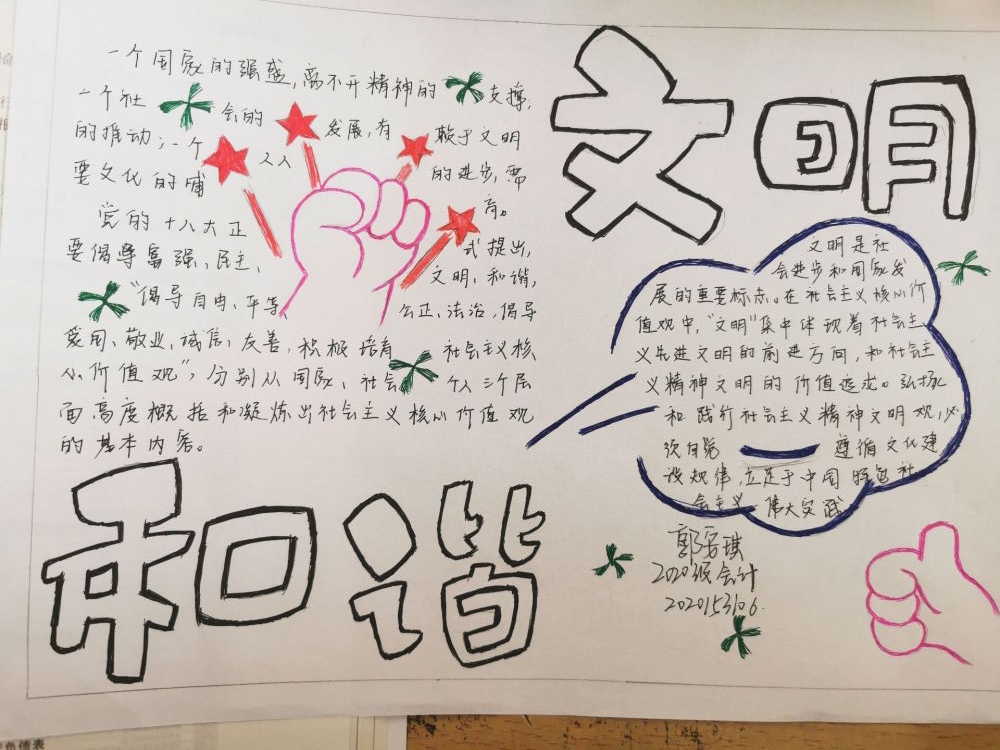 一个国家的强盛,离不开精神的支撑,
一个社会的发展,有赖于文明
的推动;一个人人的进步,需
要文化的哺育。
党的十八大正式提出,
要倡导富强、民主、文明、和谐,
“倡导自由、平等、公正、法治,倡导
爱国、敬业、诚信、友善,积极培育社会主义核
心价值观”,分别从国家、社会、个人三个层
面高度概括和凝炼出社会主义核心价值观
的基本内容。
文明
文明是社
会进步和国家发
展的重要标志。在社会主义核心价
值观中,“文明”集中体现着社会主
义先进文明的前进方向,和社会主
义精神文明的价值追求。弘扬
和践行社会主义精神文明观,必
须自觉遵循文化建
设规律,立足于中国特色社
会主义伟大实践
和谐
2020级会计
2020153106.